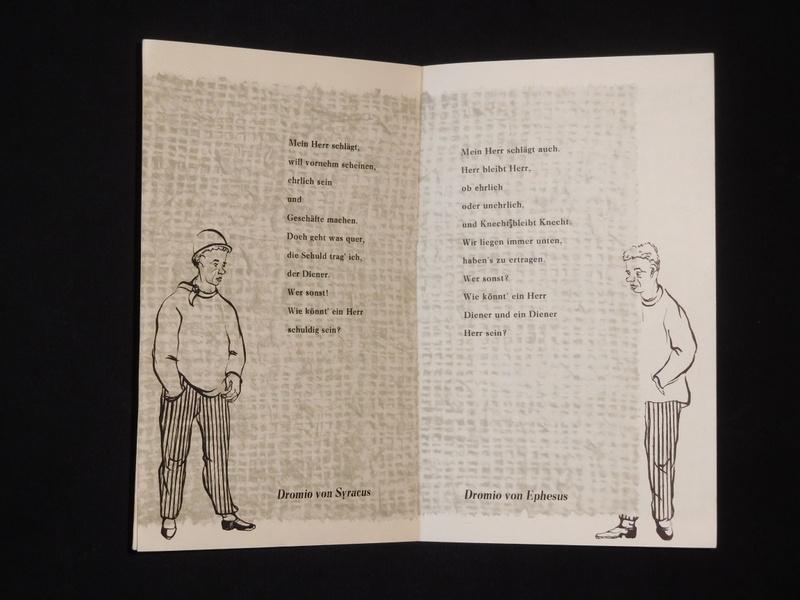 Mein Herr schlägt,
will vornehm scheinen,
ehrlich sein
und
Geschäfte machen.
Doch geht was quer,
die Schuld trag' ich,
der Diener.
Wer sonst!
Wie könnt' ein Herr
schuldig sein?
Dromio von Syracus
Mein Herr schlägt auch.
Herr bleibt Herr,
ob ehrlich
oder unehrlich,
und Knecht bleibt Knecht.
Wir liegen immer unten,
haben's zu ertragen.
Wer sonst?
Wie könnt' ein Herr
Diener und ein Diener
Herr sein?
Dromio von Ephesus